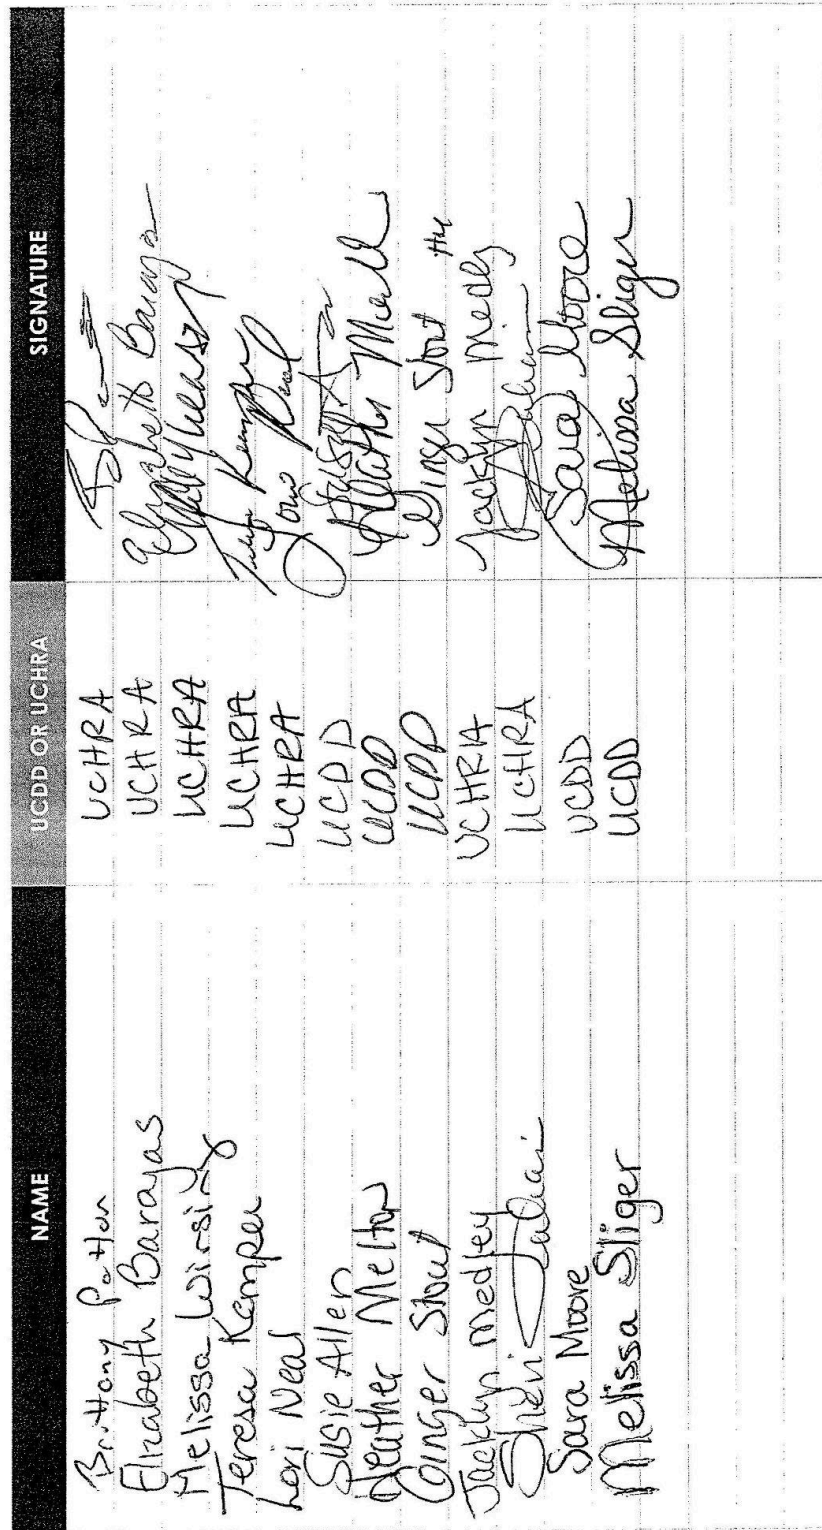 NAME UCDD OR UCHRA SIGNATURE
Brittany Patton UCHRA
Elizabeth Barajas UCHRA Elizabeth Barajas
Melissa Wirsing UCHRA
Teresa Kemper UCHRA Teresa Kemper
Lori Neal UCHRA Lori Neal
Susie Allen UCDD Susie
Heather Melton UCDD Heather
Ginger Stout UCDD Ginger Stout
Jacklyn Medley UCHRA Jacklyn Medley
Sheri UCHRA
Sara Moore UCDD Sara Moore
Melissa Sliger UCDD Melissa Sliger